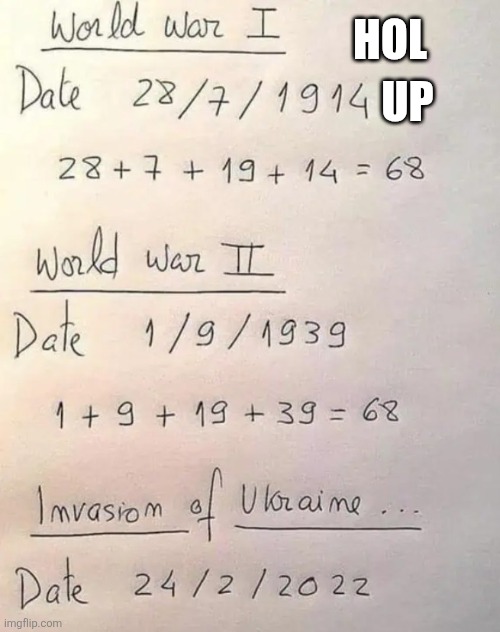 World War I
HOL
UP
Date 28/7/1914
28 + 7 + 19 + 14 = 68
World War II
Date 1/9/1939
1 + 9 + 19 + 39 = 68
Invasion of Ukraine ...
Date 24/2/2022
imgflip.com